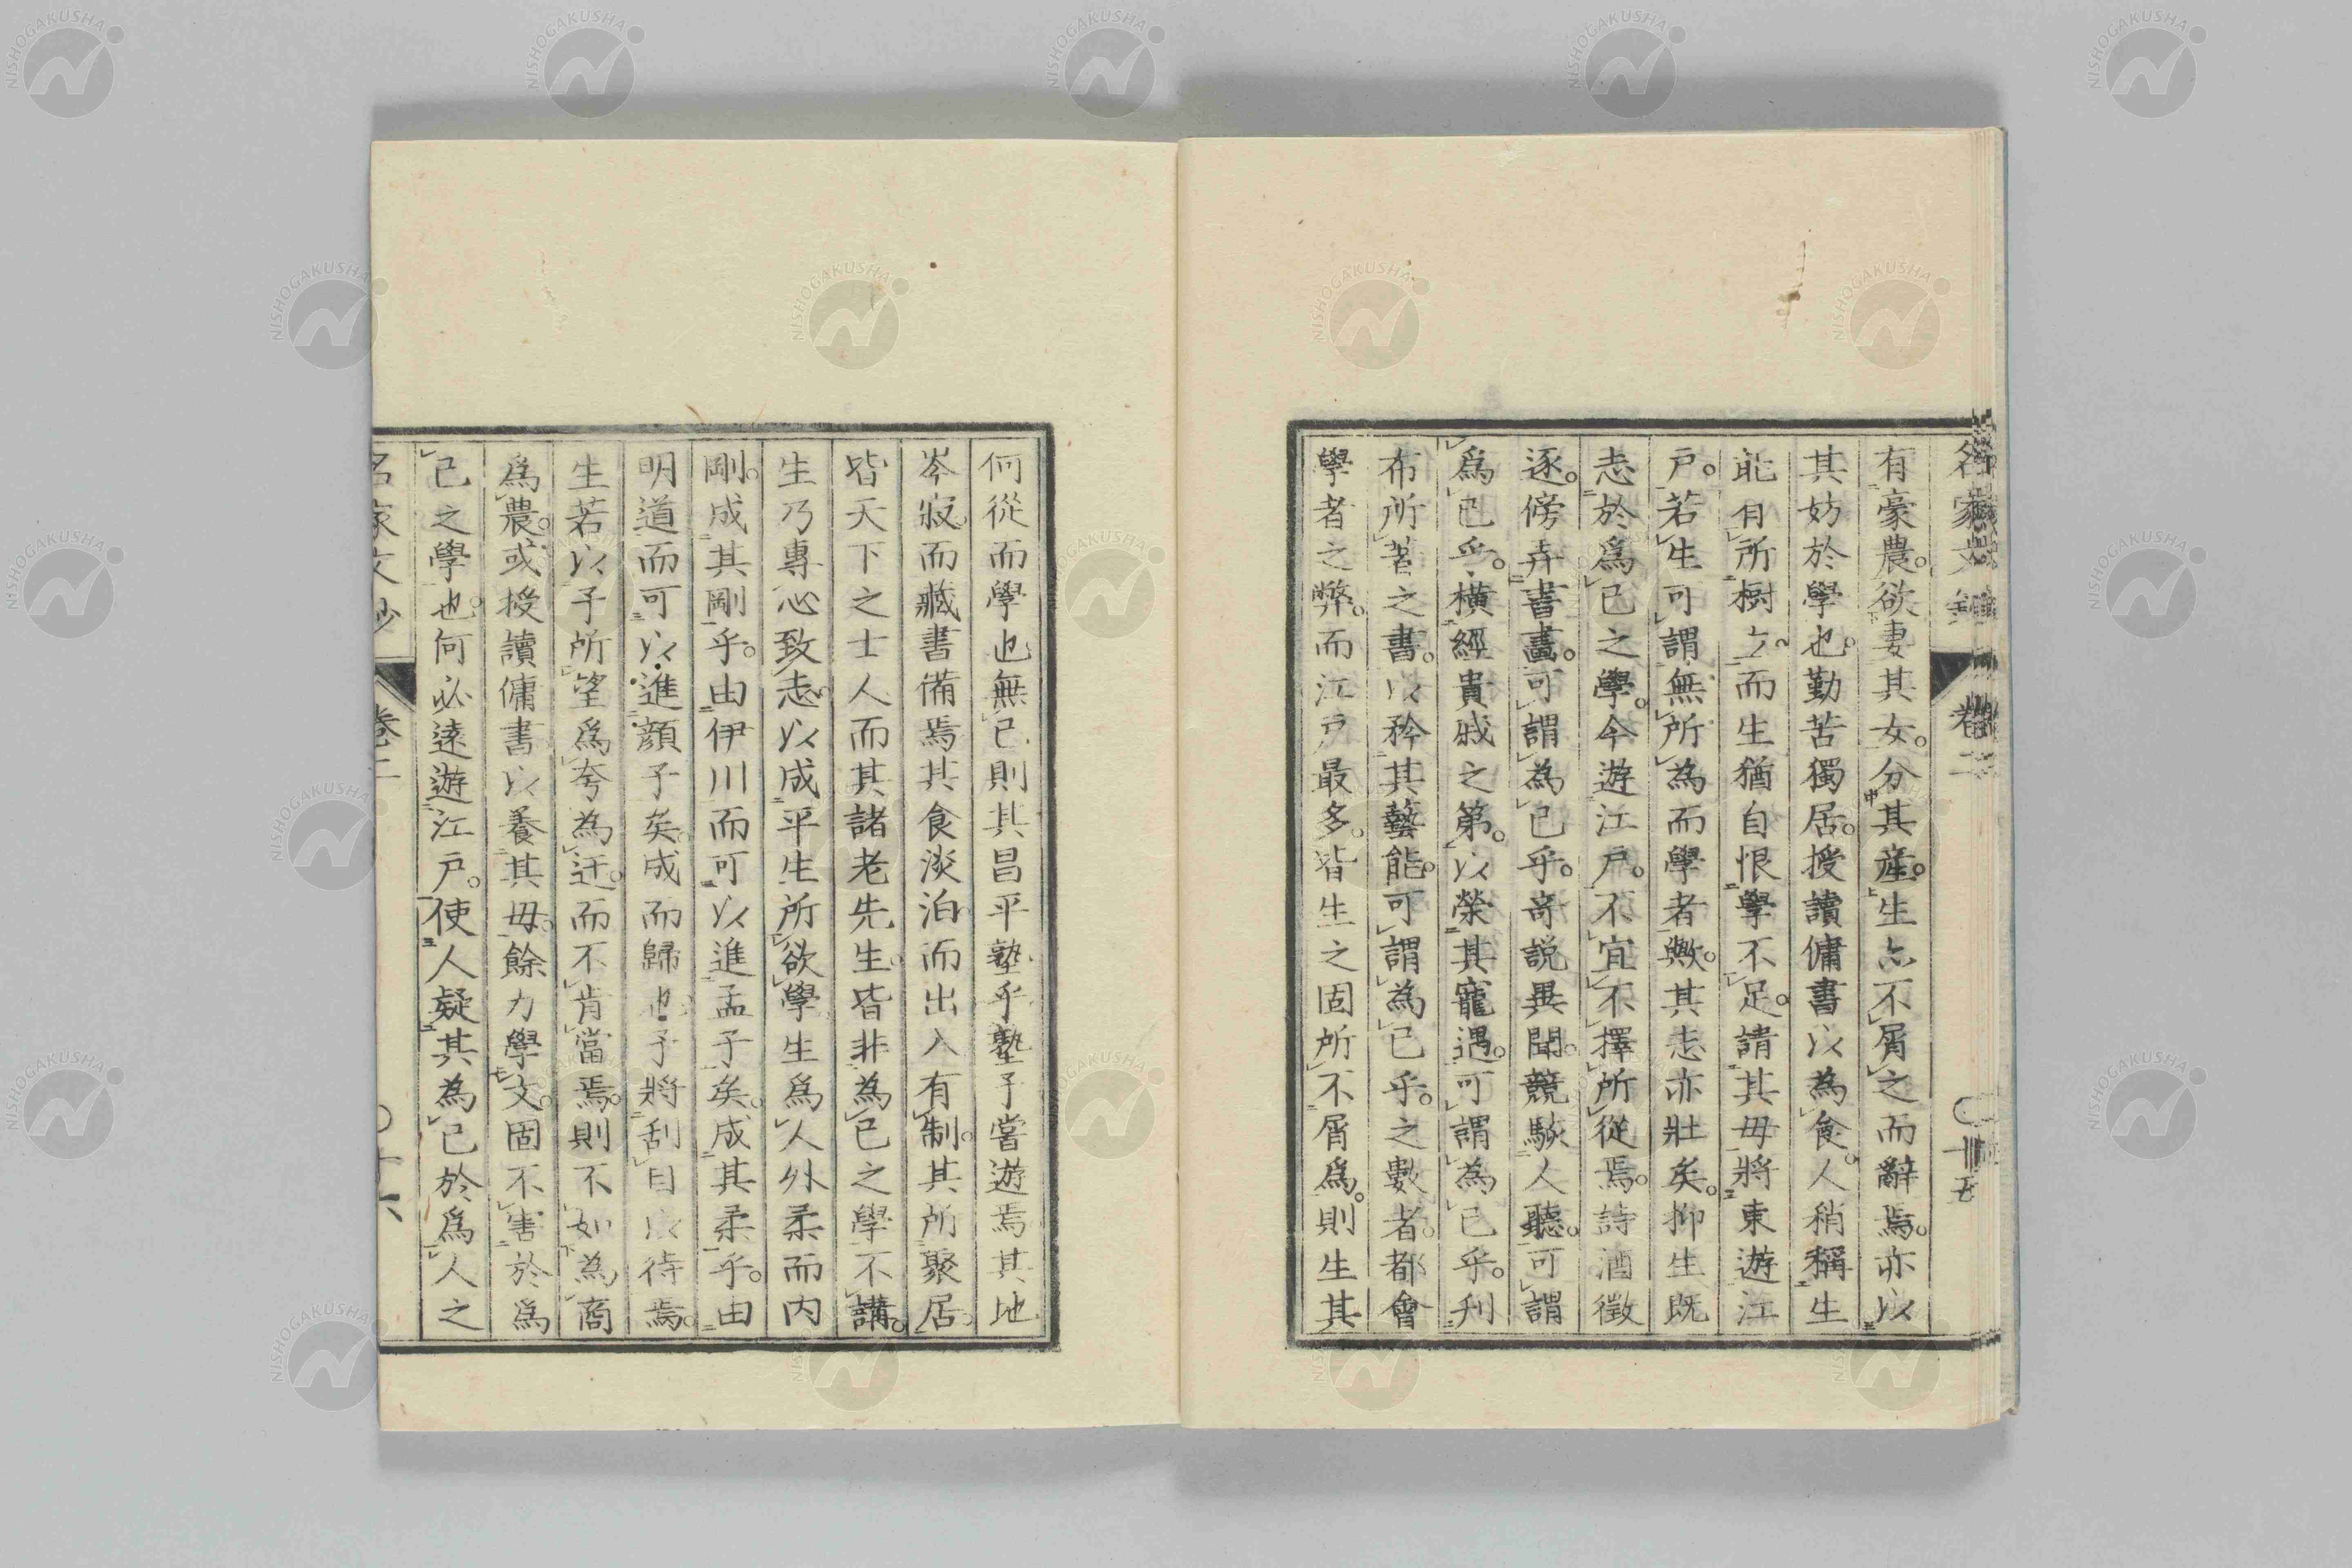 有豪農。欲妻其女。分其産。生亦不屑之而辭焉。亦以
其妨於學也。勤苦獨居。授讀傭書以為食。人稍稱生
能有所樹立。而生猶自恨學不足。請其母將東遊江
戸。若生可謂無所為而學者歟。其志亦壯矣。抑生既
志於爲己之學。今遊江戸。不宜不擇所從焉。詩酒徵
逐。傍弄書畫。可謂為己乎。奇説異聞。競駭人聽。可謂
爲己乎。橫經貴戚之第。以榮其寵遇。可謂為己乎。刋
布所著之書。以矜其藝能。可謂為己乎。之數者。都會
學者之弊。而江戸最多。皆生之固所不屑爲。則生其
何從而學也無已則其昌平塾乎塾予嘗遊焉其地
岑寂而藏書備焉其食淡泊而出入有制。其所聚居。
皆天下之士人而其諸老先生。皆非為己之學不講。
生乃專心致志。以成平生所欲學生爲人外柔而内
剛。成其剛乎。由伊川而可以進孟子矣。成其柔乎。由
明道而可以進顏子矣。成而歸也。予將刮目以待焉。
生若以予所望爲夸為迂。而不肯當焉。則不如為商
爲農。或授讀傭書以養其母。餘力學文。固不害於爲
己之學也。何必遠遊江戸。使人疑其為己於爲人之
名家文鈔
卷二
十六
名家文鈔
卷二
十五
NISHOGAKUSHA